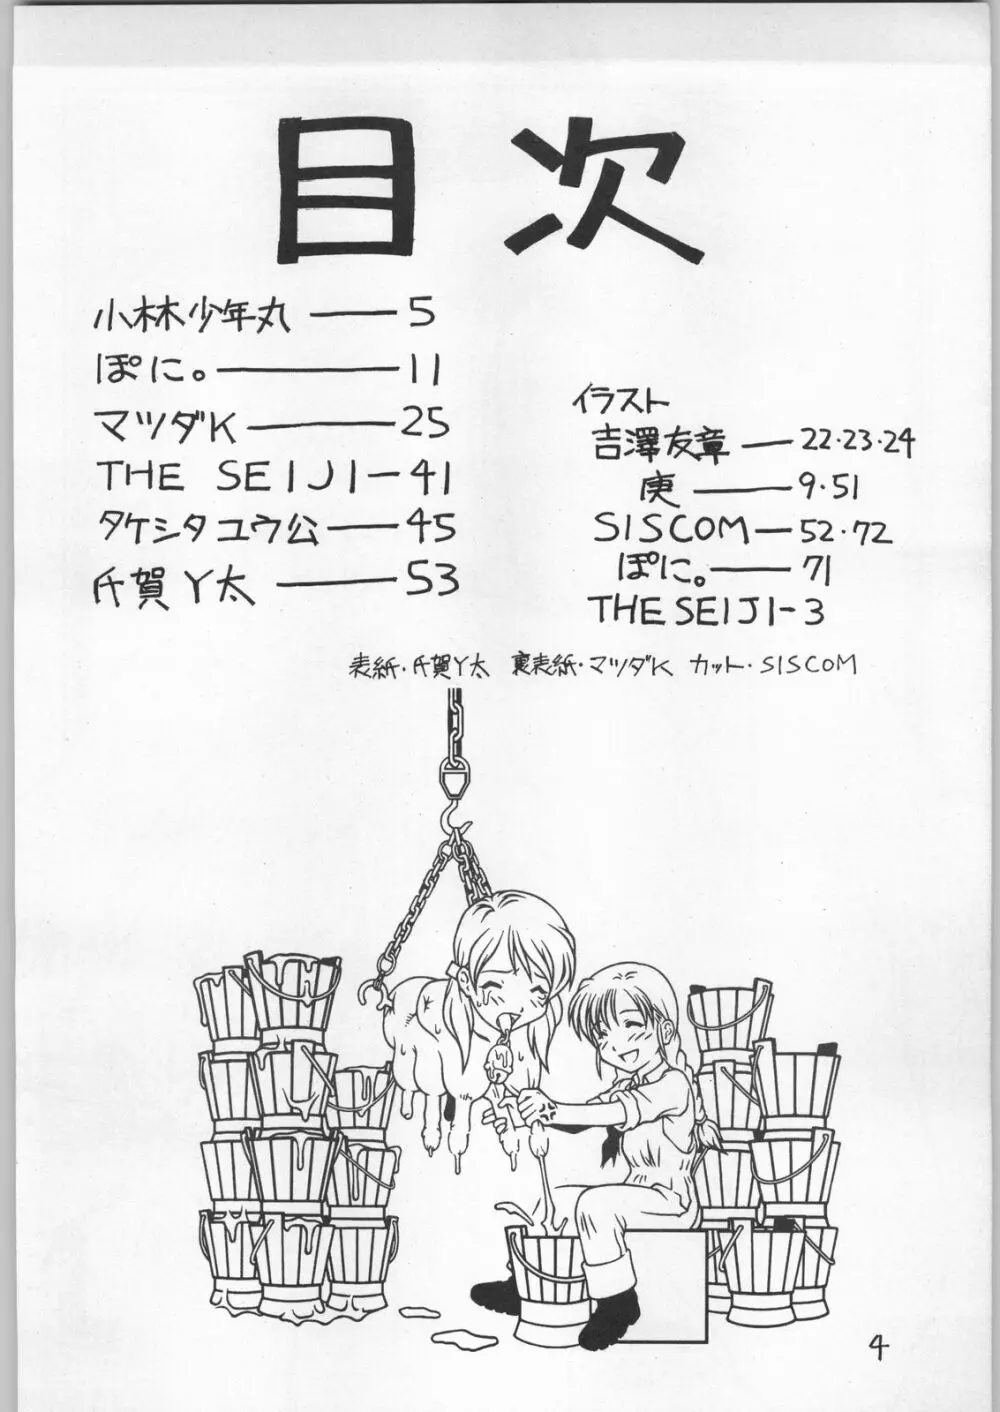 目次
小林少年丸 ―― 5
ぽに。―――― 11
マツダK ――― 25
THE SEIJI ― 41
タケシタユウ公 ―― 45
氏賀Y太 ――― 53
イラスト
吉澤友章 ―― 22・23・24
庚 ――― 9・51
SISCOM ― 52・72
ぽに。――― 71
THE SEIJI ― 3
表紙・氏賀Y太 裏表紙・マツダK カット・SISCOM
4